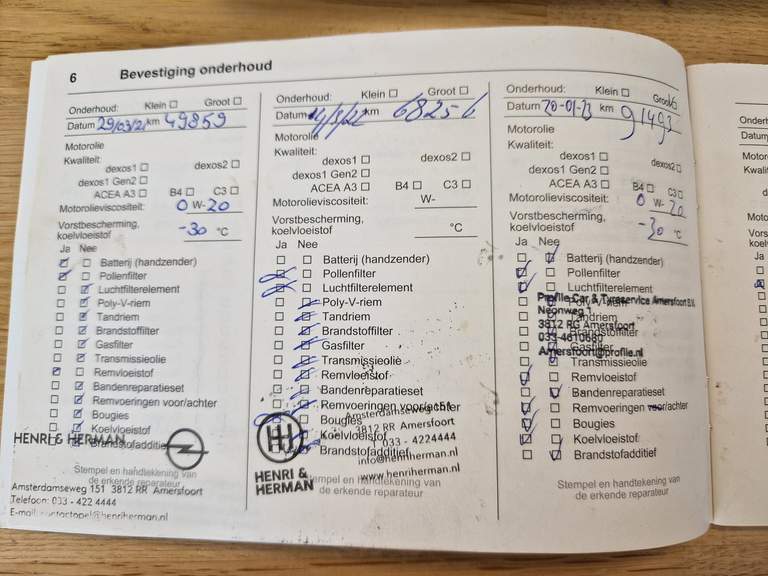 6 Bevestiging onderhoud
Onderhoud: Klein ☐ Groot ☐
Datum 29/03/21 km 49859
Motorolie
Kwaliteit:
dexos1 ☐ dexos2 ☐
dexos1 Gen2 ☐
ACEA A3 ☐ B4 ☐ C3 ☐
Motorolieviscositeit: 0 W-20
Vorstbescherming,
koelvloeistof -30 °C
Ja Nee
Batterij (handzender)
Pollenfilter
Luchtfilterelement
Poly-V-riem
Tandriem
Brandstoffilter
Gasfilter
Transmissieolie
Remvloeistof
Bandenreparatieset
Remvoeringen voor/achter
Bougies
Koelvloeistof
Brandstofadditief
HENRI & HERMAN
Stempel en handtekening van
de erkende reparateur
Amsterdamseweg 151 3812 RR Amersfoort
Telefoon: 033 - 422 4444
E-mail: contactopel@henriherman.nl
Onderhoud: Klein ☐ Groot ☐
Datum km 68256
Motorolie
Kwaliteit:
dexos1 ☐ dexos2 ☐
dexos1 Gen2 ☐
ACEA A3 ☐ B4 ☐ C3 ☐
Motorolieviscositeit: W-
Vorstbescherming,
koelvloeistof °C
Ja Nee
Batterij (handzender)
Pollenfilter
Luchtfilterelement
Poly-V-riem
Tandriem
Brandstoffilter
Gasfilter
Transmissieolie
Remvloeistof
Bandenreparatieset
Remvoeringen voor/achter
Bougies
Koelvloeistof
Brandstofadditief
Amsterdamseweg 151
3812 RR Amersfoort
033 - 4224444
info@henriherman.nl
www.henriherman.nl
HENRI &
HERMAN
Stempel en handtekening van
de erkende reparateur
Onderhoud: Klein ☐ Groot
Datum 20-01-23 km 91493
Motorolie
Kwaliteit:
dexos1 ☐ dexos2 ☐
dexos1 Gen2 ☐
ACEA A3 ☐ B4 ☐ C3 ☐
Motorolieviscositeit: 0 W-20
Vorstbescherming,
koelvloeistof -30 °C
Ja Nee
Batterij (handzender)
Pollenfilter
Luchtfilterelement
Poly-V-riem
Tandriem
Brandstoffilter
Gasfilter
Transmissieolie
Remvloeistof
Bandenreparatieset
Remvoeringen voor/achter
Bougies
Koelvloeistof
Brandstofadditief
Profile Car & Tyreservice Amersfoort B.V.
Neonweg 1
3812 RG Amersfoort
033-4610680
Amersfoort@profile.nl
Stempel en handtekening van
de erkende reparateur